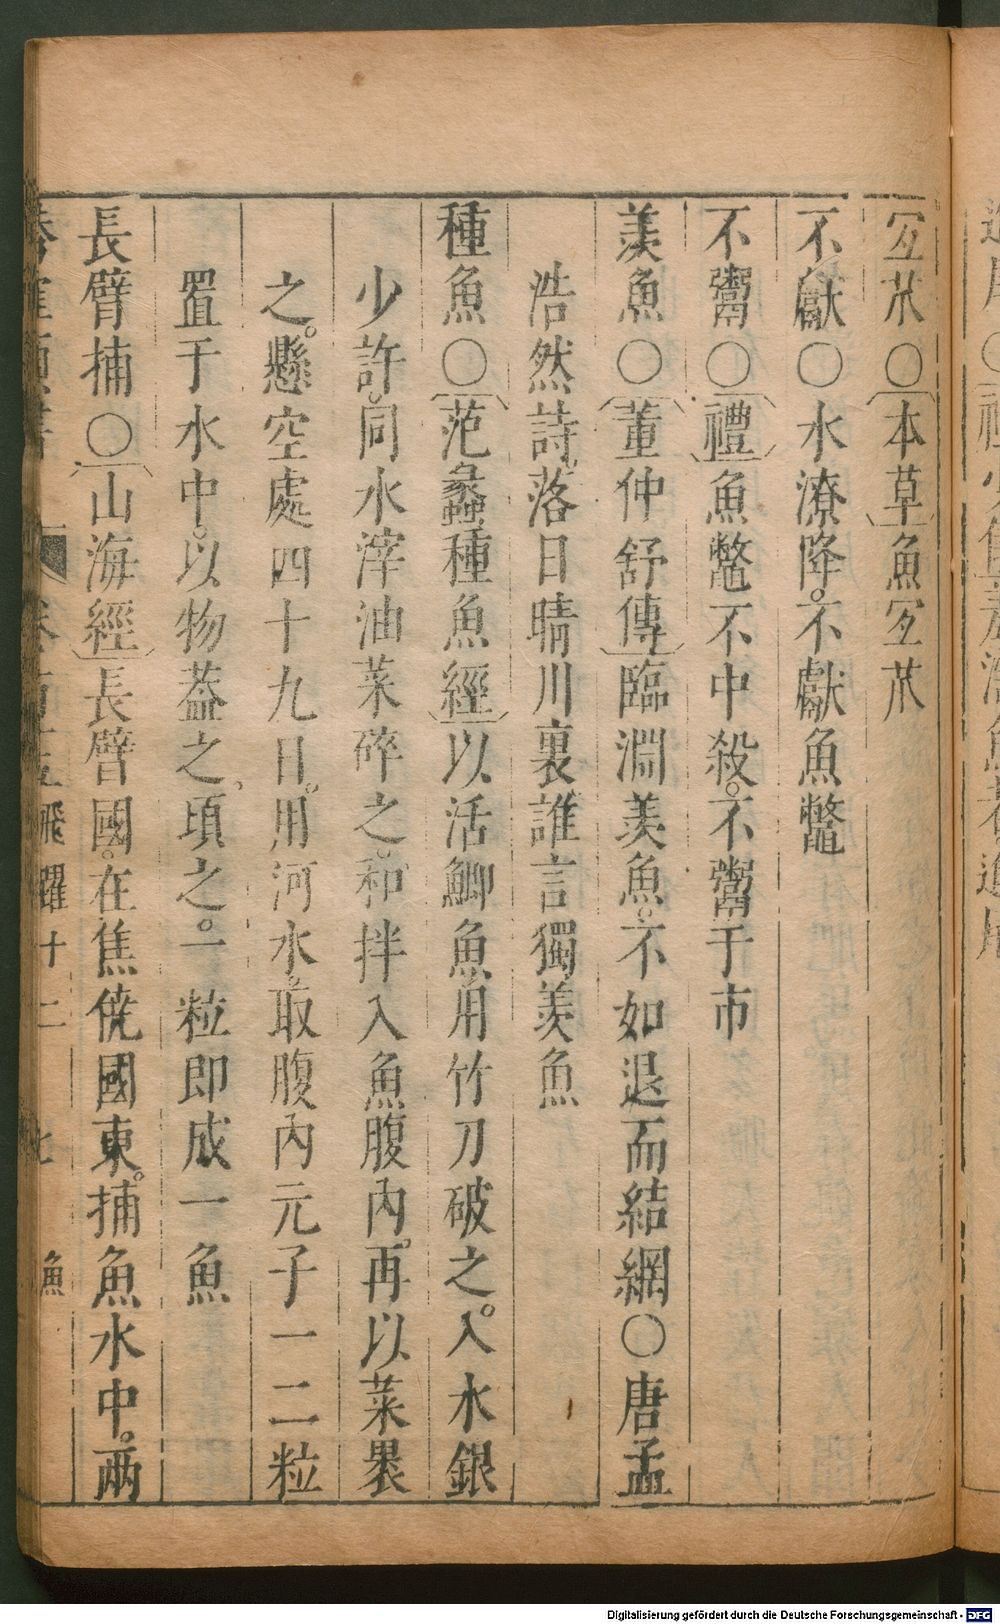 宜苽○本草魚宜苽
不獻○水潦降不獻魚鼈
不鬻○禮魚鼈不中殺不鬻于市
羡魚○董仲舒傳臨淵羡魚不如退而結網○唐孟
浩然詩落日晴川裏誰言獨羡魚
種魚○范蠡種魚經以活鯽魚用竹刀破之入水銀
少許同水滓油菜碎之和拌入魚腹內再以菜褁
之懸空處四十九日用河水取腹內元子一二粒
置于水中以物葢之頃之一粒即成一魚
長臂捕○山海經長臂國在焦僥國東捕魚水中兩
飛躍十二 七 魚
Digitalisierung gefördert durch die Deutsche Forschungsgemeinschaft - DFG